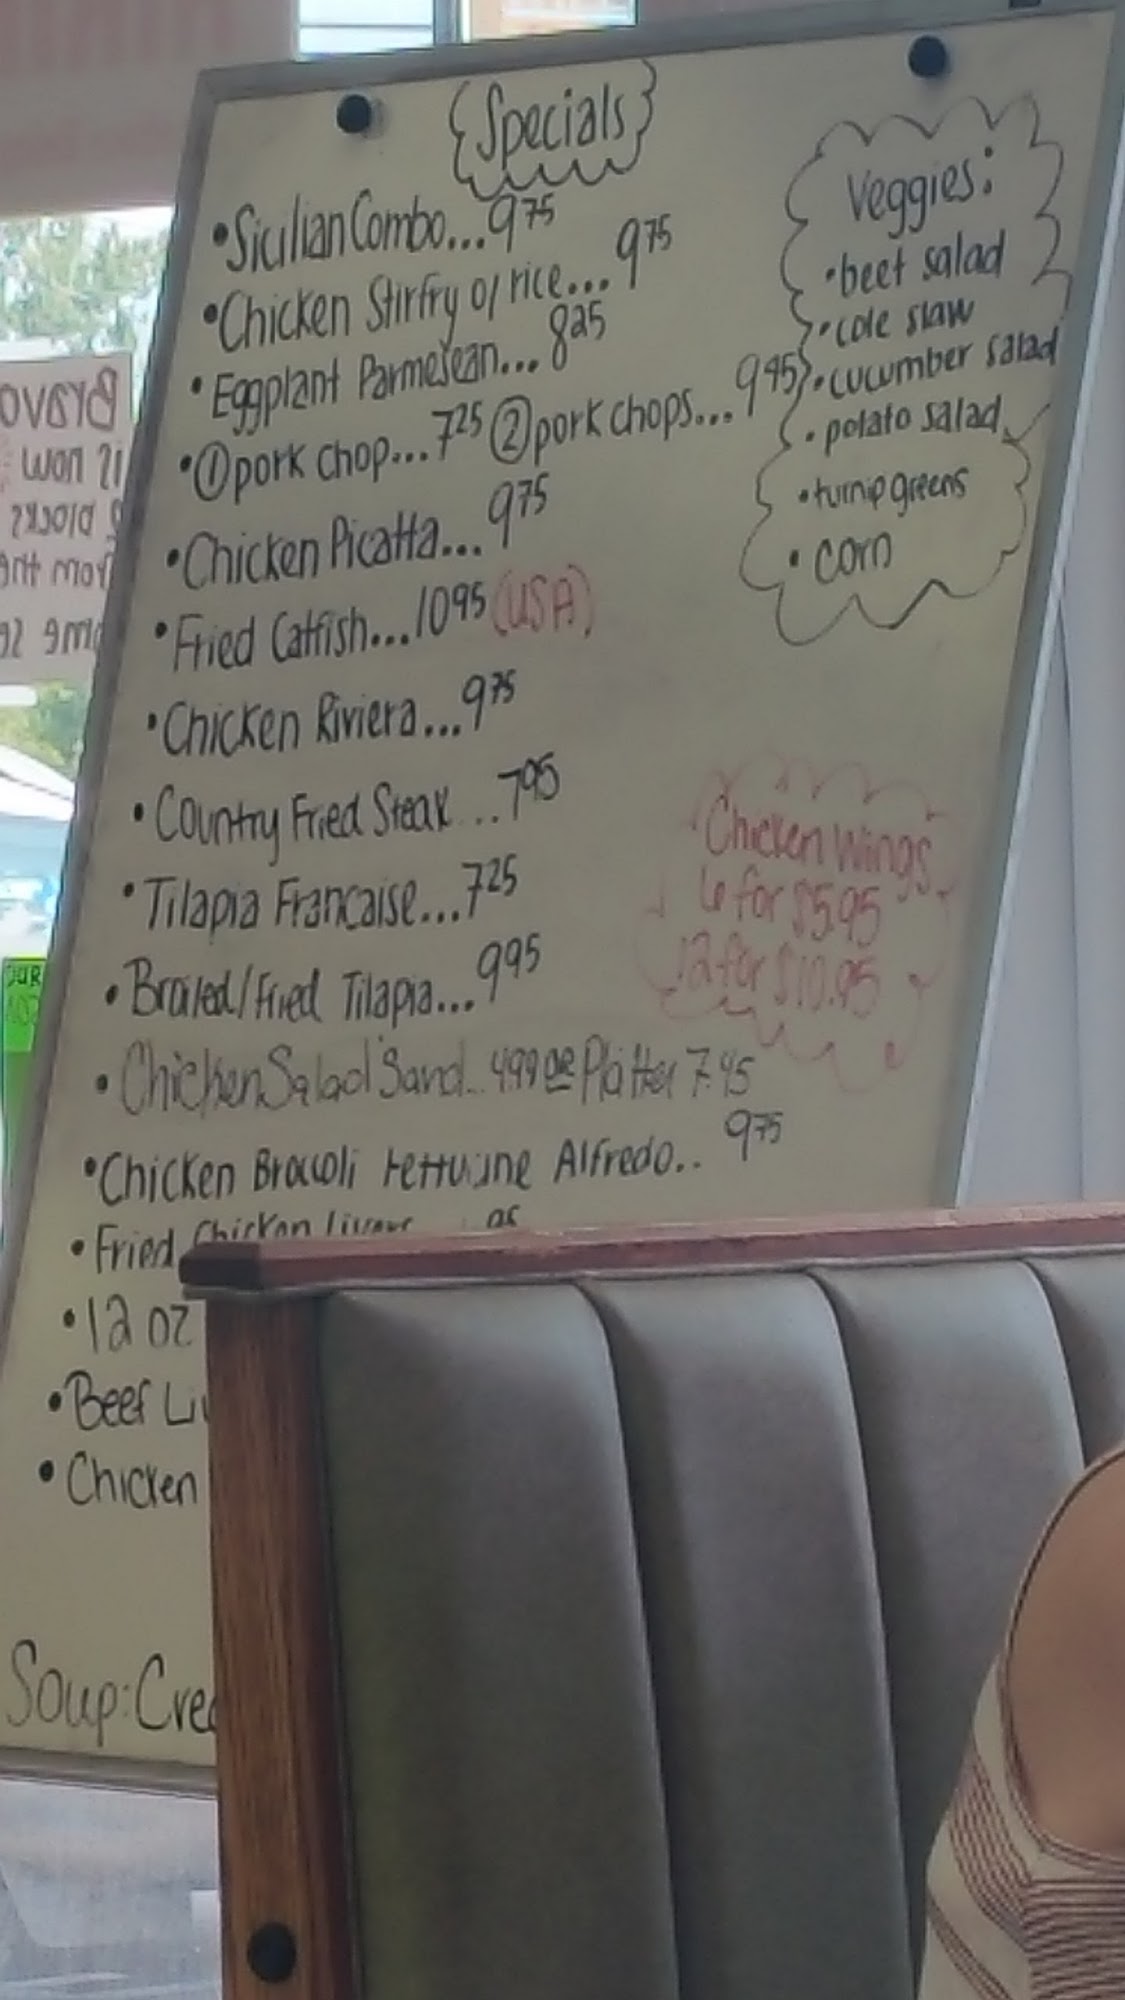 Specials
•Sicilian Combo...9 75
•Chicken Stirfry o/ rice...9 75
•Eggplant Parmesean...8 25
•①pork chop...7 25 ②pork chops...9 45
•Chicken Picatta...9 75
•Fried Catfish...10 95 (USA)
•Chicken Riviera...9 75
•Country Fried Steak...7 95
•Tilapia Francaise...7 25
•Broiled/Fried Tilapia...9 95
•Chicken Salad Sand...4 99 or Platter 7.45
•Chicken Broccoli Fettuccine Alfredo..9 75
•Fried Chicken Livers
•12 oz
•Beef
•Chicken
Soup:
Veggies:
•beet salad
•cole slaw
•cucumber salad
•potato salad
•turnip greens
•corn
Chicken Wings
6 for $5.95
12 for $10.95
Bravo
is now
blocks